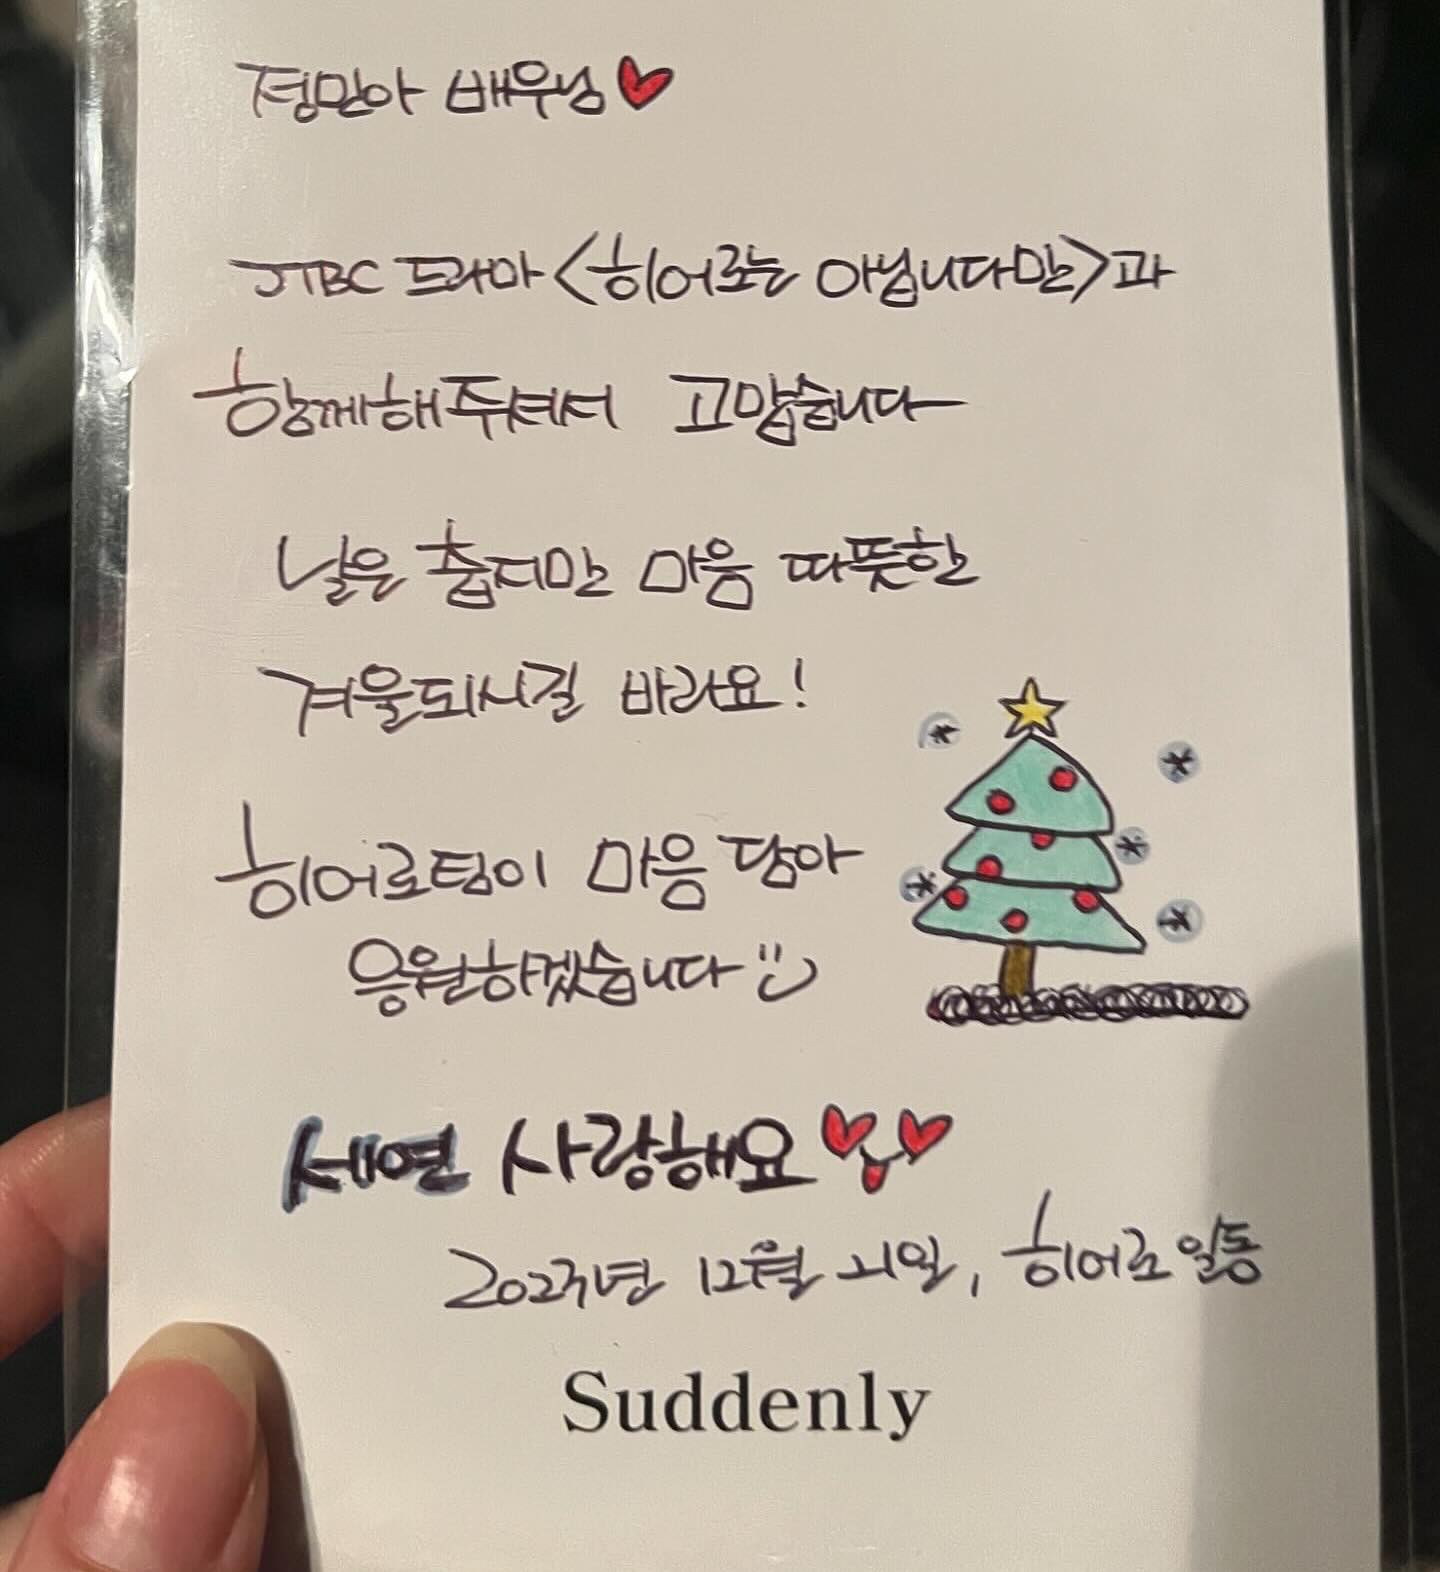 정민아 배우님
JTBC 드라마 <히어로는 아닙니다만>과
함께해주셔서 고맙습니다
날은 춥지만 마음 따뜻한
겨울되시길 바라요!
히어로팀이 마음 담아
응원하겠습니다
세연 사랑해요
2023년 12월 21일, 히어로 일동
Suddenly